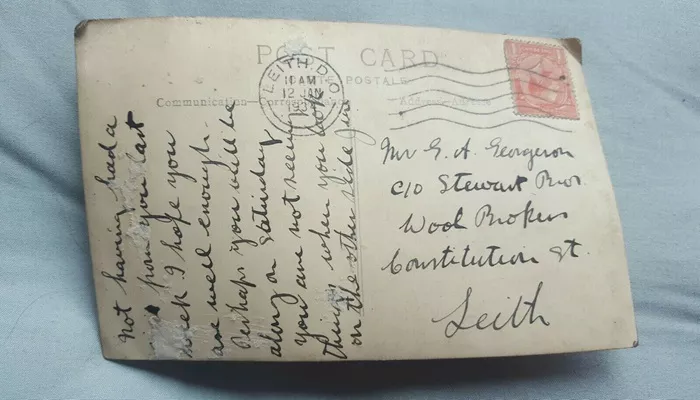 POST CARD
CARTE POSTALE
Communication–Correspondance
Address–Adresse
LEITH.D.O
10 AM
12 JAN
18
Not having had a
from you last
week I hope you
are well enough.
Perhaps you will be
along on Saturday
you are not seeing
things when you look
on the other side
Mr G. A. Georgeson
c/o Stewart Bros.
Wool Brokers
Constitution St.
Leith